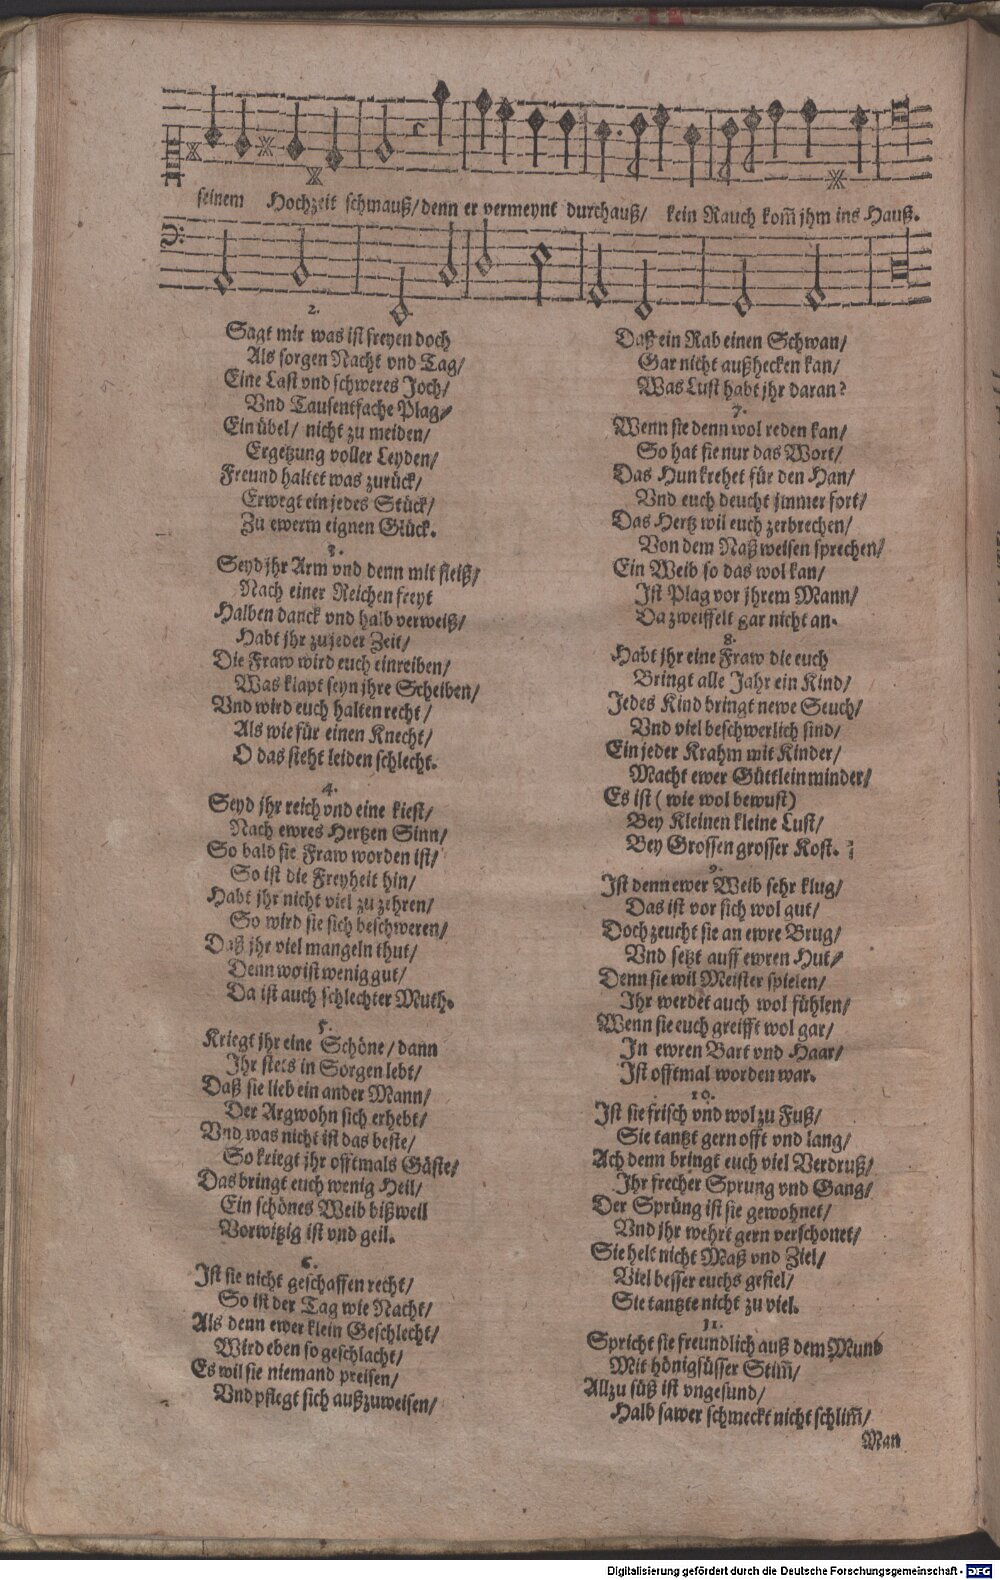 seinem Hochzeit schmauß/ denn er vermeynt durchauß/ kein Rauch kom̃ jhm ins Hauß.
2.
Sagt mir was ist freyen doch
Als sorgen Nacht vnd Tag/
Eine Last vnd schweres Joch/
Vnd Tausentfache Plag/
Ein übel/ nicht zu meiden/
Ergetzung voller Leyden/
Freund haltet was zurück/
Erwegt ein jedes Stück/
Zu ewerm eignen Glück.
3.
Seyd jhr Arm vnd denn mit fleiß/
Nach einer Reichen freyt
Halben danck vnd halb verweiß/
Habt jhr zu jeder Zeit/
Die Fraw wird euch einreiben/
Was klapt seyn jhre Scheiben/
Vnd wird euch halten recht/
Als wie für einen Knecht/
O das sieht leiden schlecht.
4.
Seyd jhr reich vnd eine kiest/
Nach ewres Hertzen Sinn/
So bald sie Fraw worden ist/
So ist die Freyheit hin/
Habt jhr nicht viel zu zehren/
So wird sie sich beschweren/
Daß jhr viel mangeln thut/
Denn wo ist wenig gut/
Da ist auch schlechter Muth.
5.
Kriegt jhr eine Schöne/ dann
Jhr stets in Sorgen lebt/
Daß sie lieb ein ander Mann/
Der Argwohn sich erhebt/
Vnd was nicht ist das beste/
So kriegt jhr offtmals Gäste/
Das bringt euch wenig Heil/
Ein schönes Weib bißweil
Vorwitzig ist vnd geil.
6.
Jst sie nicht geschaffen recht/
So ist der Tag wie Nacht/
Als denn ewer klein Geschlecht/
Wird eben so geschlacht/
Es wil sie niemand preisen/
Vnd pflegt sich außzuweisen/
Daß ein Rab einen Schwan/
Gar nicht außhecken kan/
Was Lust habt jhr daran?
7.
Wenn sie denn wol reden kan/
So hat sie nur das Wort/
Das Hun krehet für den Han/
Vnd euch deucht jmmer fort/
Das Hertz wil euch zerbrechen/
Von dem Naßweisen sprechen/
Ein Weib so das wol kan/
Jst Plag vor jhrem Mann/
Da zweiffelt gar nicht an.
8.
Habt jhr eine Fraw die euch
Bringt alle Jahr ein Kind/
Jedes Kind bringt newe Seuch/
Vnd viel beschwerlich sind/
Ein jeder Krahm mit Kinder/
Macht ewer Güttlein minder/
Es ist ( wie wol bewust)
Bey Kleinen kleine Lust/
Bey Grossen grosser Kost.
9.
Jst denn ewer Weib sehr klug/
Das ist vor sich wol gut/
Doch zeucht sie an ewre Brug/
Vnd setzt auff ewren Hut/
Denn sie wil Meister spielen/
Jhr werdet auch wol fühlen/
Wenn sie euch greifft wol gar/
Jn ewren Bart vnd Haar/
Jst offtmal worden war.
10.
Jst sie frisch vnd wol zu Fuß/
Sie tantzt gern offt vnd lang/
Ach denn bringt euch viel Verdruß/
Jhr frecher Sprung vnd Gang/
Der Sprüng ist sie gewohnet/
Vnd jhr wehrt gern verschonet/
Sie helt nicht Maß vnd Ziel/
Viel besser euchs gefiel/
Sie tantzte nicht zu viel.
11.
Spricht sie freundlich auß dem Mund
Mit hönigsüsser Stim̃/
Allzu süß ist vngesund/
Halb sawer schmeckt nicht schlim̃/
Man
Digitalisierung gefördert durch die Deutsche Forschungsgemeinschaft - DFG